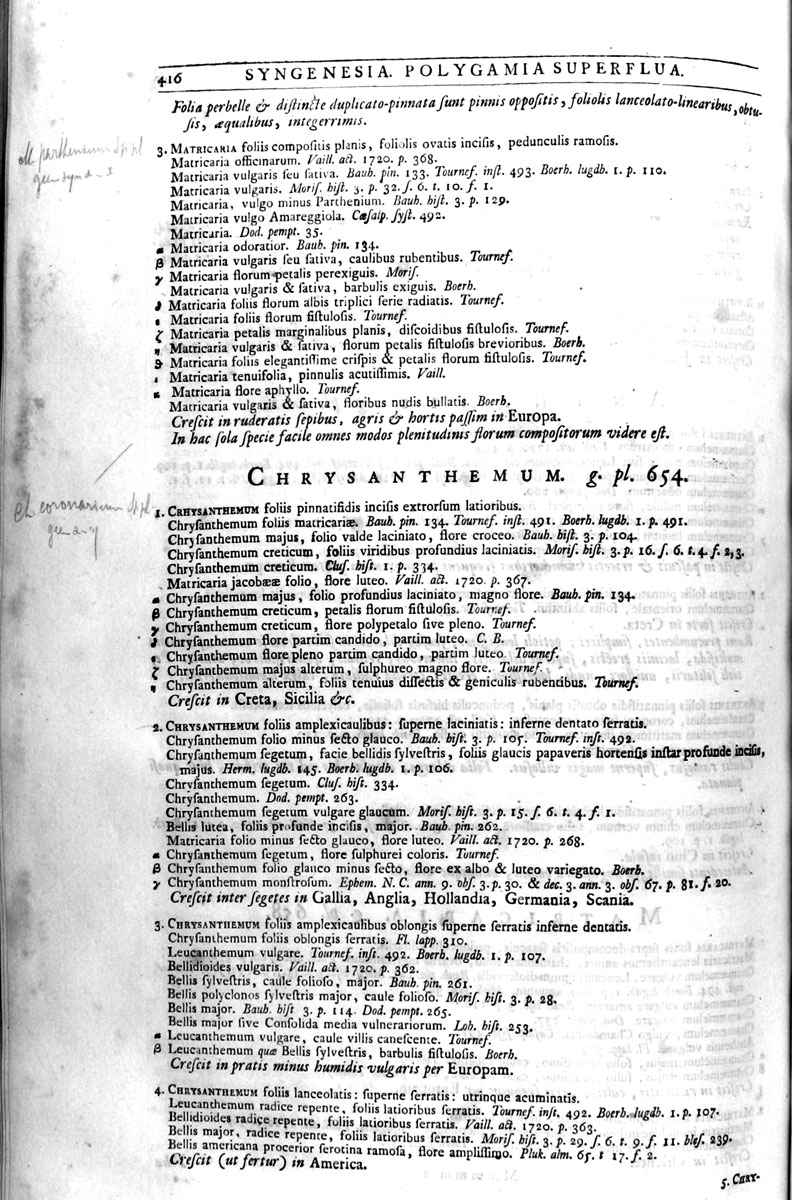 416 SYNGENESIA. POLYGAMIA SUPERFLUA.
Folia perbelle & diſtincte duplicato-pinnata ſunt pinnis oppoſitis, foliolis lanceolato-linearibus, obtu-
ſis, æqualibus, integerrimis.
3. MATRICARIA foliis compoſitis planis, foliolis ovatis inciſis, pedunculis ramoſis.
Matricaria officinarum. Vaill. act. 1720. p. 368.
Matricaria vulgaris ſeu ſativa. Bauh. pin. 133. Tournef. inſt. 493. Boerh. lugdb. 1. p. 110.
Matricaria vulgaris. Moriſ. hiſt. 3. p. 32. ſ. 6. t. 10. f. 1.
Matricaria, vulgo minus Parthenium. Bauh. hiſt. 3. p. 129.
Matricaria vulgo Amareggiola. Cæſalp. ſyſt. 492.
Matricaria. Dod. pempt. 35.
α Matricaria odoratior. Bauh. pin. 134.
β Matricaria vulgaris ſeu ſativa, caulibus rubentibus. Tournef.
γ Matricaria florum petalis perexiguis. Moriſ.
Matricaria vulgaris & ſativa, barbulis exiguis. Boerh.
δ Matricaria foliis florum albis triplici ſerie radiatis. Tournef.
ε Matricaria foliis florum fiſtuloſis. Tournef.
ζ Matricaria petalis marginalibus planis, diſcoidibus fiſtuloſis. Tournef.
η Matricaria vulgaris & ſativa, florum petalis fiſtuloſis brevioribus. Boerh.
θ Matricaria foliis elegantiſſime criſpis & petalis florum fiſtuloſis. Tournef.
ι Matricaria tenuifolia, pinnulis acutiſſimis. Vaill.
κ Matricaria flore aphyllo. Tournef.
Matricaria vulgaris & ſativa, floribus nudis bullatis. Boerh.
Creſcit in ruderatis ſepibus, agris & hortis paſſim in Europa.
In hac ſola ſpecie facile omnes modos plenitudinis florum compoſitorum videre eſt.
CHRYSANTHEMUM. g. pl. 654.
1. CRHYSANTHEMUM foliis pinnatifidis inciſis extrorſum latioribus.
Chryſanthemum foliis matricariæ. Bauh. pin. 134. Tournef. inſt. 491. Boerh. lugdb. 1. p. 491.
Chryſanthemum majus, folio valde laciniato, flore croceo. Bauh. hiſt. 3. p. 104.
Chryſanthemum creticum, foliis viridibus profundius laciniatis. Moriſ. hiſt. 3. p. 16. ſ. 6. t. 4. f. 2, 3.
Chryſanthemum creticum. Cluſ. hiſt. 1. p. 334.
Matricaria jacobææ folio, flore luteo. Vaill. act. 1720. p. 367.
α Chryſanthemum majus, folio profundius laciniato, magno flore. Bauh. pin. 134.
β Chryſanthemum creticum, petalis florum fiſtuloſis. Tournef.
γ Chryſanthemum creticum, flore polypetalo ſive pleno. Tournef.
δ Chryſanthemum flore partim candido, partim luteo. C. B.
ε Chryſanthemum flore pleno partim candido, partim luteo. Tournef.
ζ Chryſanthemum majus alterum, ſulphureo magno flore. Tournef.
η Chryſanthemum alterum, foliis tenuius diſſectis & geniculis rubentibus. Tournef.
Creſcit in Creta, Sicilia &c.
2. CHRYSANTHEMUM foliis amplexicaulibus: ſuperne laciniatis: inferne dentato ſerratis.
Chryſanthemum folio minus ſecto glauco. Bauh. hiſt. 3. p. 105. Tournef. inſt. 492.
Chryſanthemum ſegetum, facie bellidis ſylveſtris, foliis glaucis papaveris hortenſis inſtar profunde inciſis,
majus. Herm. lugdb. 145. Boerh. lugdb. 1. p. 106.
Chryſanthemum ſegetum. Cluſ. hiſt. 334.
Chryſanthemum. Dod. pempt. 263.
Chryſanthemum ſegetum vulgare glaucum. Moriſ. hiſt. 3. p. 15. ſ. 6. t. 4. f. 1.
Bellis lutea, foliis profunde inciſis, major. Bauh. pin. 262.
Matricaria folio minus ſecto glauco, flore luteo. Vaill. act. 1720. p. 268.
α Chryſanthemum ſegetum, flore ſulphurei coloris. Tournef.
β Chryſanthemum folio glauco minus ſecto, flore ex albo & luteo variegato. Boerh.
γ Chryſanthemum monſtroſum. Ephem. N. C. ann. 9. obſ. 3. p. 30. & dec. 3. ann. 3. obſ. 67. p. 81. f. 20.
Creſcit inter ſegetes in Gallia, Anglia, Hollandia, Germania, Scania.
3. CHRYSANTHEMUM foliis amplexicaulibus oblongis ſuperne ſerratis inferne dentatis.
Chryſanthemum foliis oblongis ſerratis. Fl. lapp. 310.
Leucanthemum vulgare. Tournef. inſt. 492. Boerh. lugdb. 1. p. 107.
Bellidioides vulgaris. Vaill. act. 1720. p. 362.
Bellis ſylveſtris, caule folioſo, major. Bauh. pin. 261.
Bellis polyclonos ſylveſtris major, caule folioſo. Moriſ. hiſt. 3. p. 28.
Bellis major. Bauh. hiſt 3. p. 114. Dod. pempt. 265.
Bellis major ſive Conſolida media vulnerariorum. Lob. hiſt. 253.
α Leucanthemum vulgare, caule villis caneſcente. Tournef.
β Leucanthemum quæ Bellis ſylveſtris, barbulis fiſtuloſis. Boerh.
Creſcit in pratis minus humidis vulgaris per Europam.
4. CHRYSANTHEMUM foliis lanceolatis: ſuperne ſerratis: utrinque acuminatis.
Leucanthemum radice repente, foliis latioribus ſerratis. Tournef. inſt. 492. Boerh. lugdb. 1. p. 107.
Bellidioides radice repente, foliis latioribus ſerratis. Vaill. act. 1720. p. 363.
Bellis major, radice repente, foliis latioribus ſerratis. Moriſ. hiſt. 3. p. 29. ſ. 6. t. 9. f. 11. bleſ. 239.
Bellis americana procerior ſerotina ramoſa, flore ampliſſimo. Pluk. alm. 65. t 17. f. 2.
Creſcit (ut fertur) in America.
5. CHRY-